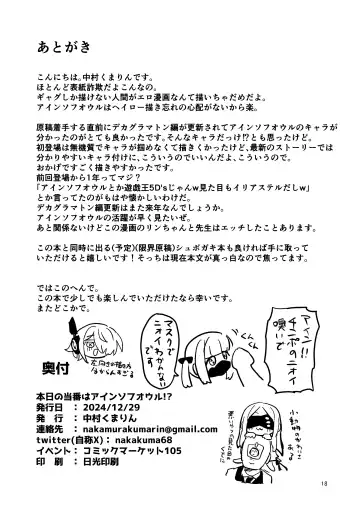 あとがき
こんにちは。中村くまりんです。
ほとんど表紙詐欺だよこんなの。
ギャグしか描けない人間がエロ漫画なんて描いちゃだめだよ。
アインソフオウルはヘイロー描き忘れの心配がないから楽。
原稿着手する直前にデカグラマトン編が更新されてアインソフオウルのキャラが
分かったのがとても良かったです。そんなキャラだっけ!?とも思ったけど。
初登場は無機質でキャラが掴めなくて描きくかったけど、最新のストーリーでは
分かりやすいキャラ付けに、こういうのでいいんだよ、こういうので。
おかげですごく描きやすかったです。
前回登場から1年ってマジ？
「アインソフオウルとか遊戯王5D'sじゃんw見た目もイリアステルだしw」
とか言ってたのがもはや懐かしいわけだ。
デカグラマトン編更新はまた来年なんでしょうか。
アインソフオウルの活躍が早く見たいぜ。
あと関係ないけどこの漫画のリンちゃんと先生はエッチしたことあります。
この本と同時に出る(予定)(限界原稿)シュポガキ本も良ければ手に取って
いただけると嬉しいです！そっちは現在本文が真っ白なので焦ってます。
ではこのへんで。
この本で少しでも楽しんでいただけたなら幸いです。
またどこかで。
アイン!!
チンポのニオイ
嗅いで
くんくん
マスクで
ニオイわかんない
です
奥付
本日の当番はアインソフオウル!?
発行日 : 2024/12/29
発行 : 中村くまりん
連絡先 : nakamurakumarin@gmail.com
twitter(自称X) : nakakuma68
イベント : コミックマーケット105
印刷 : 日光印刷
小動物の
かわいさ
がある
18